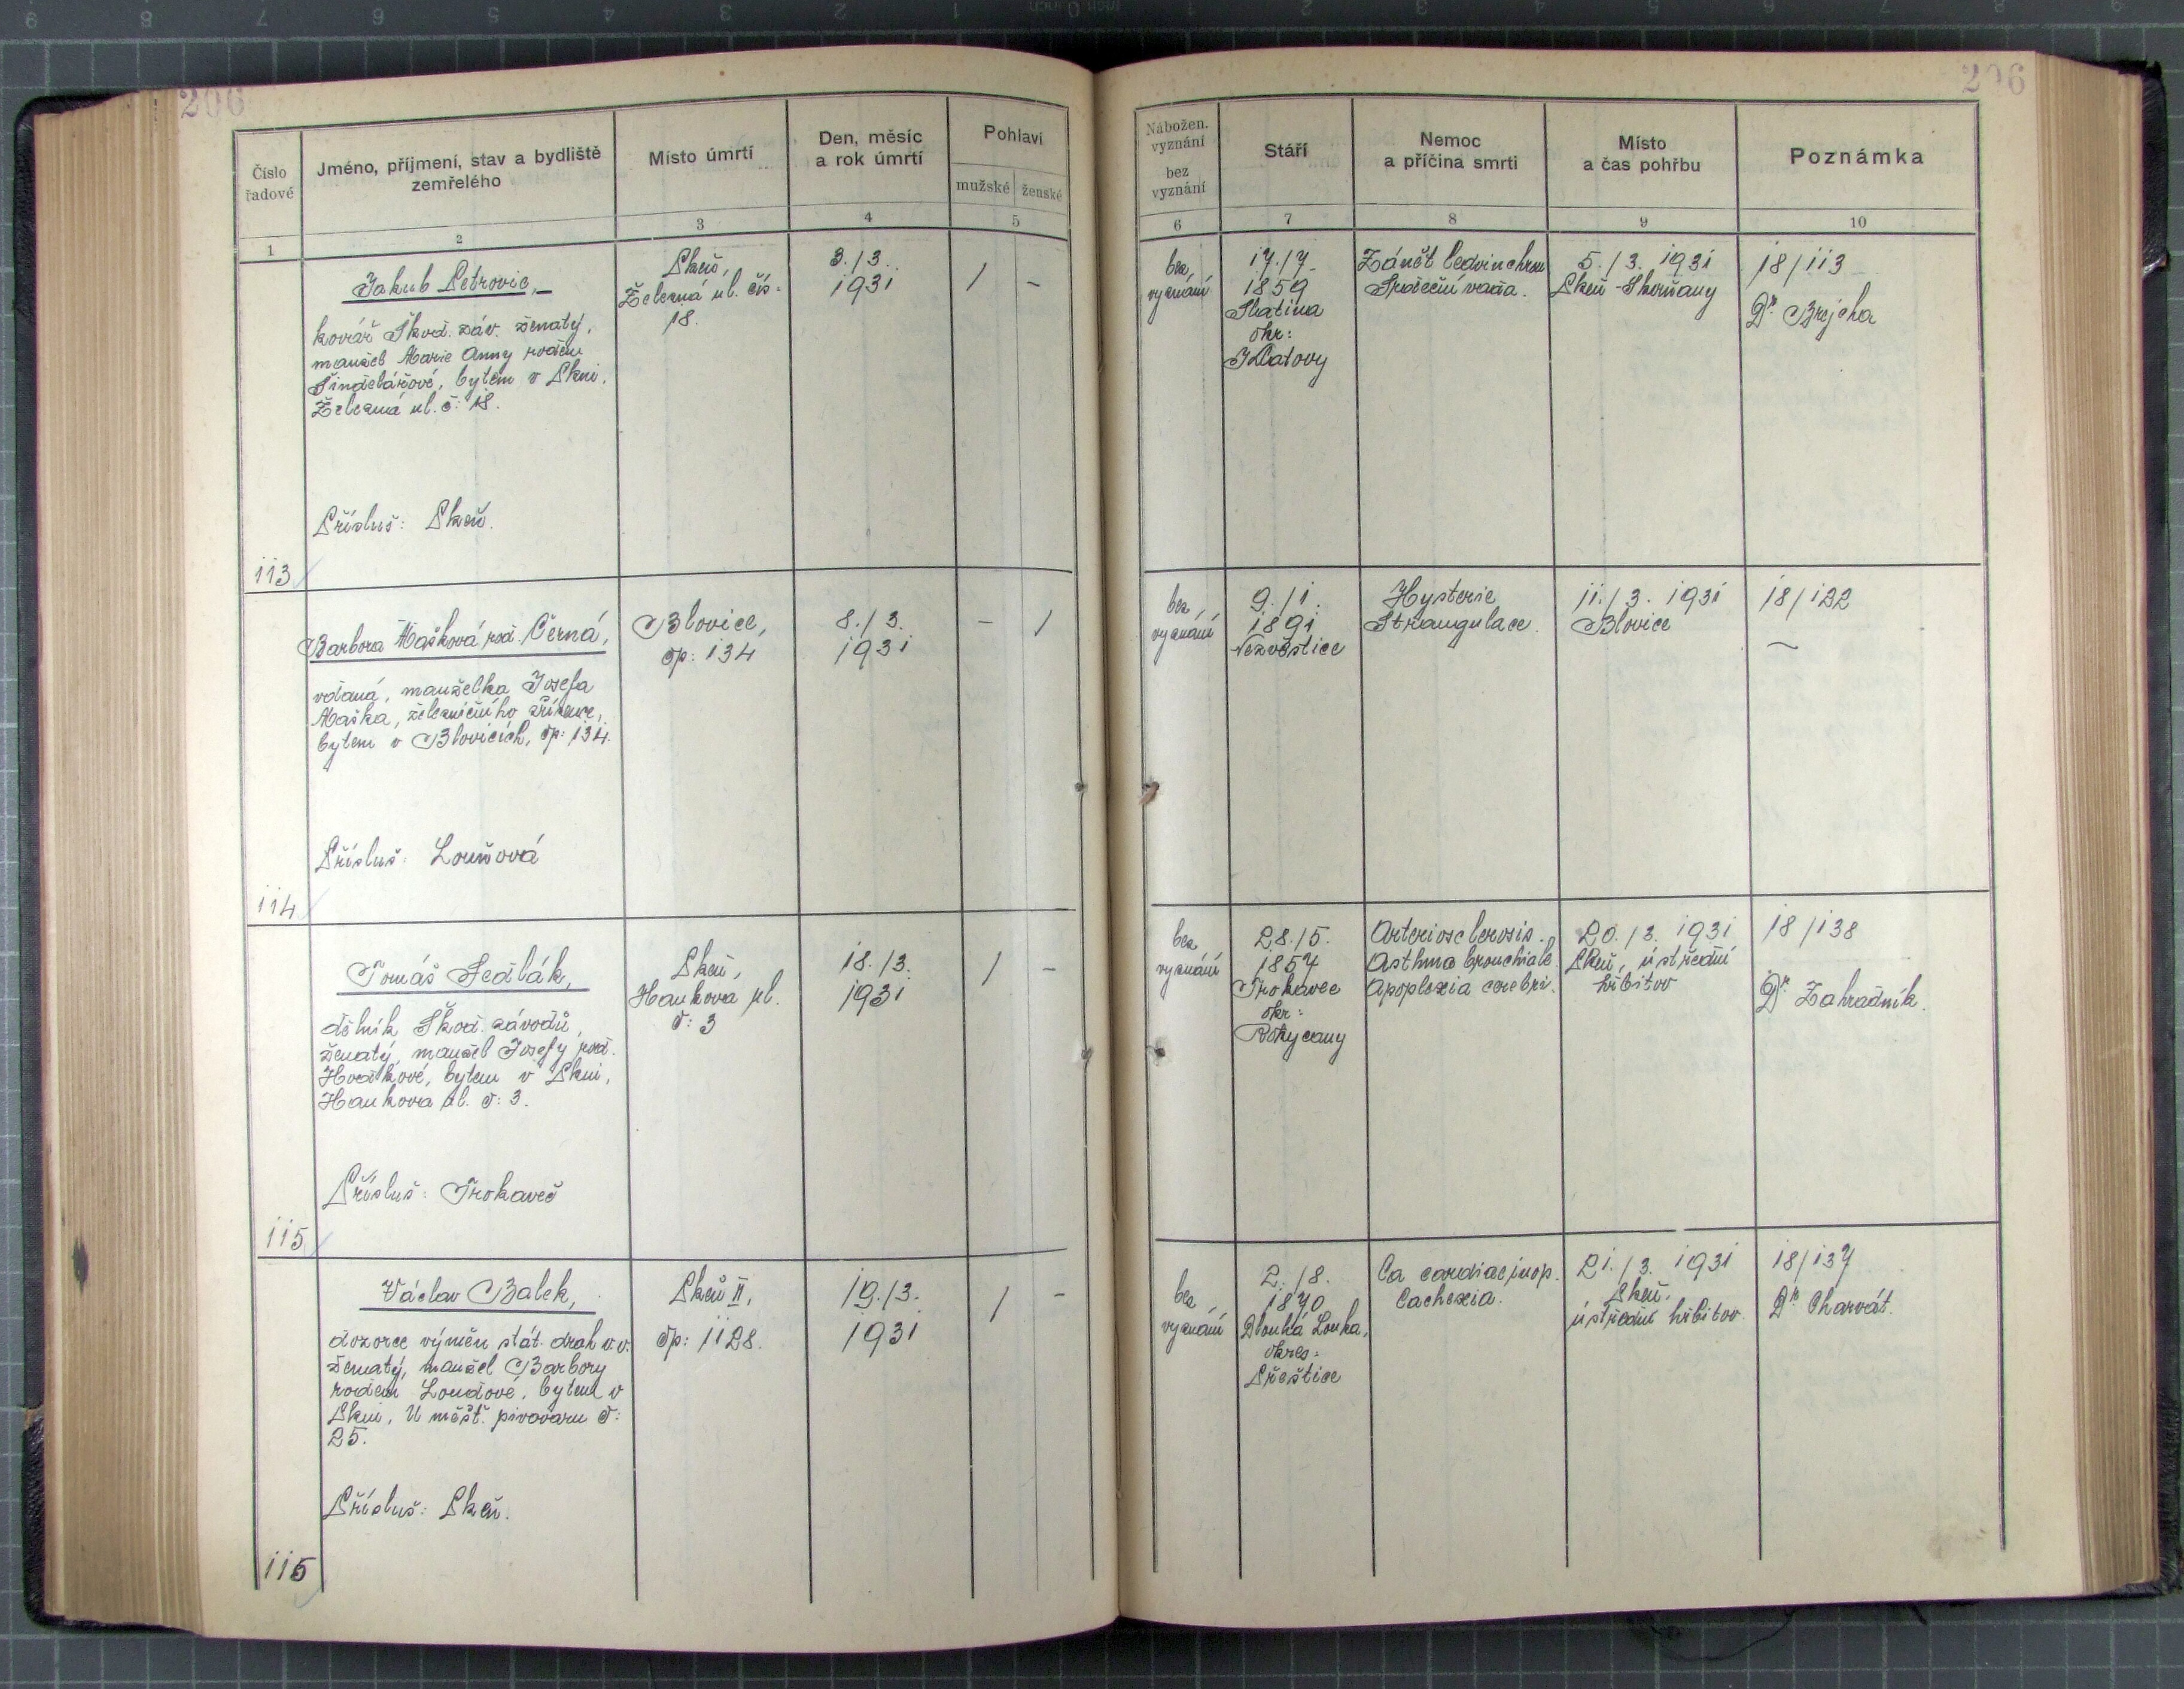 206
206
Číslo řadové
Jméno, příjmení, stav a bydliště zemřelého
Místo úmrtí
Den, měsíc a rok úmrtí
Pohlaví
mužské ženské
1 2 3 4 5
Nábožen. vyznání
bez vyznání
Stáří
Nemoc a příčina smrti
Místo a čas pohřbu
Poznámka
6 7 8 9 10
113
Jakub Petrovic,
kovář Škod. záv. ženatý,
manžel Marie Anny rozen
Šindelářové, bytem v Plzni,
Železná ul. č: 18.
Přísluš: Plzeň.
Plzeň,
Železná ul. čís:
18.
3./3.
1931
/ –
bez
vyznání
17./7.
1859
Slatina
okr:
Klatovy
Zánět ledvin chron
Srdeční vada.
5./3. 1931
Plzeň - Skvrňany
18/113
Dr. Brejcha
114
Barbora Mašková roz. Černá,
vdaná, manželka Josefa
Maška, železničního zřízence,
bytem v Blovicích, čp: 134.
Přísluš: Louňová
Blovice,
čp: 134
8./3.
1931
– /
bez
vyznání
9./1.
1891
Nezvěstice
Hysterie
Strangulace.
11./3. 1931
Blovice
18/122
~
115
Tomáš Sedlák,
dělník Škod. závodů,
ženatý, manžel Josefy roz.
bytem v Plzni,
Hankova ul. č: 3.
Přísluš: Trokaveč
Plzeň,
Hankova ul.
č: 3
18./3.
1931
/ –
bez
vyznání
28./5.
1857
Trokavec
okr:
Rokycany
Arteriosclerosis.
Asthma bronchiale.
Apoplexia cerebri.
20./3. 1931
Plzeň, ústřední
hřbitov
18/138
Dr. Zahradník.
116
Václav Balek,
dozorce výměn stát. drah v.v.
ženatý, manžel Barbory
rozen Loudové, bytem v
Plzni, U měšť. pivovaru č:
25.
Přísluš: Plzeň.
Plzeň II,
čp: 1128.
19./3.
1931
/ –
bez
vyznání
2./8.
1870
Dlouhá Louka,
okres:
Přeštice
Ca cardiae inop.
Cachexia.
21./3. 1931
Plzeň,
ústřední hřbitov.
18/137
Dr. Charvát.